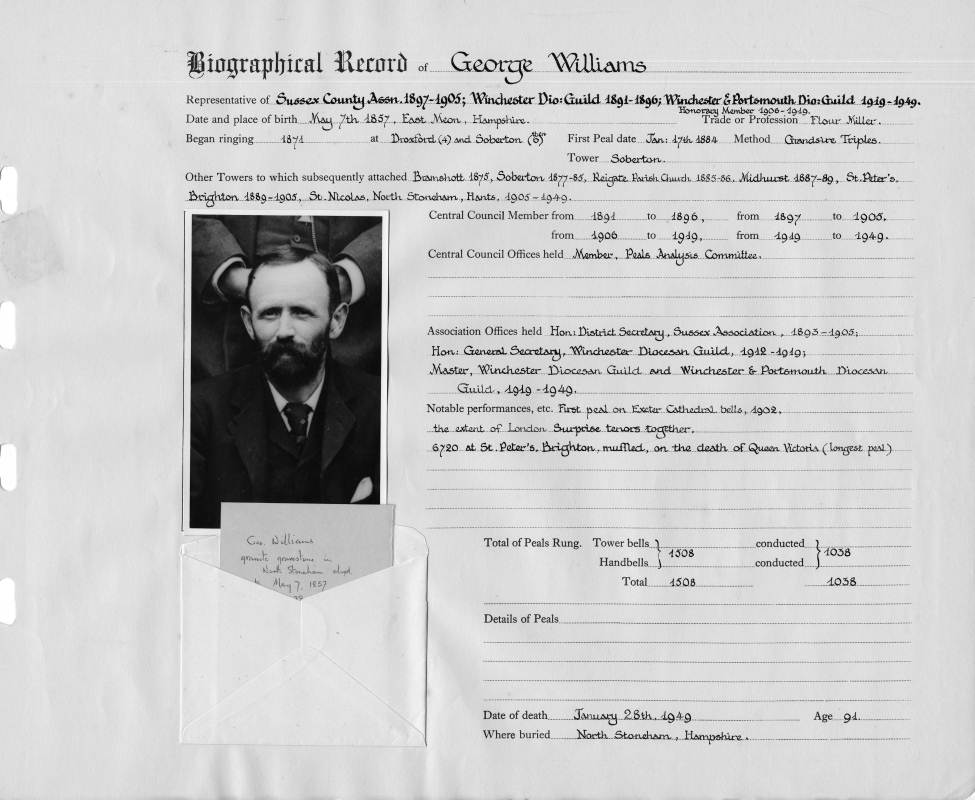 Biographical Record of George Williams
Representative of Sussex County Assn. 1897-1905; Winchester Dio: Guild 1891-1896; Winchester & Portsmouth Dio: Guild 1919-1949.
Honorary Member 1906-1919.
Date and place of birth May 7th 1857, East Meon, Hampshire. Trade or Profession Flour Miller.
Began ringing 1871 at Droxford (4) and Soberton (6) First Peal date Jan: 17th 1884 Method Grandsire Triples.
Tower Soberton.
Other Towers to which subsequently attached Bramshott 1875, Soberton 1877-85, Reigate Parish Church 1885-86, Midhurst 1887-89, St. Peter's,
Brighton 1889-1905, St. Nicolas, North Stoneham, Hants, 1905-1949.
Central Council Member from 1891 to 1896, from 1897 to 1905,
from 1906 to 1919, from 1919 to 1949.
Central Council Offices held Member, Peals Analysis Committee.
Association Offices held Hon: District Secretary, Sussex Association, 1893-1905;
Hon: General Secretary, Winchester Diocesan Guild, 1912-1919;
Master, Winchester Diocesan Guild and Winchester & Portsmouth Diocesan
Guild, 1919-1949.
Notable performances, etc. First peal on Exeter Cathedral bells, 1902,
the extent of London Surprise tenors together.
6720 at St. Peter's, Brighton, muffled, on the death of Queen Victoria (longest peal)
Geo. Williams
granite gravestone in
North Stoneham
May 7, 1857
Total of Peals Rung. Tower bells } 1508 conducted } 1038
Handbells conducted
Total 1508 1038
Details of Peals
Date of death January 28th, 1949 Age 91.
Where buried North Stoneham, Hampshire.